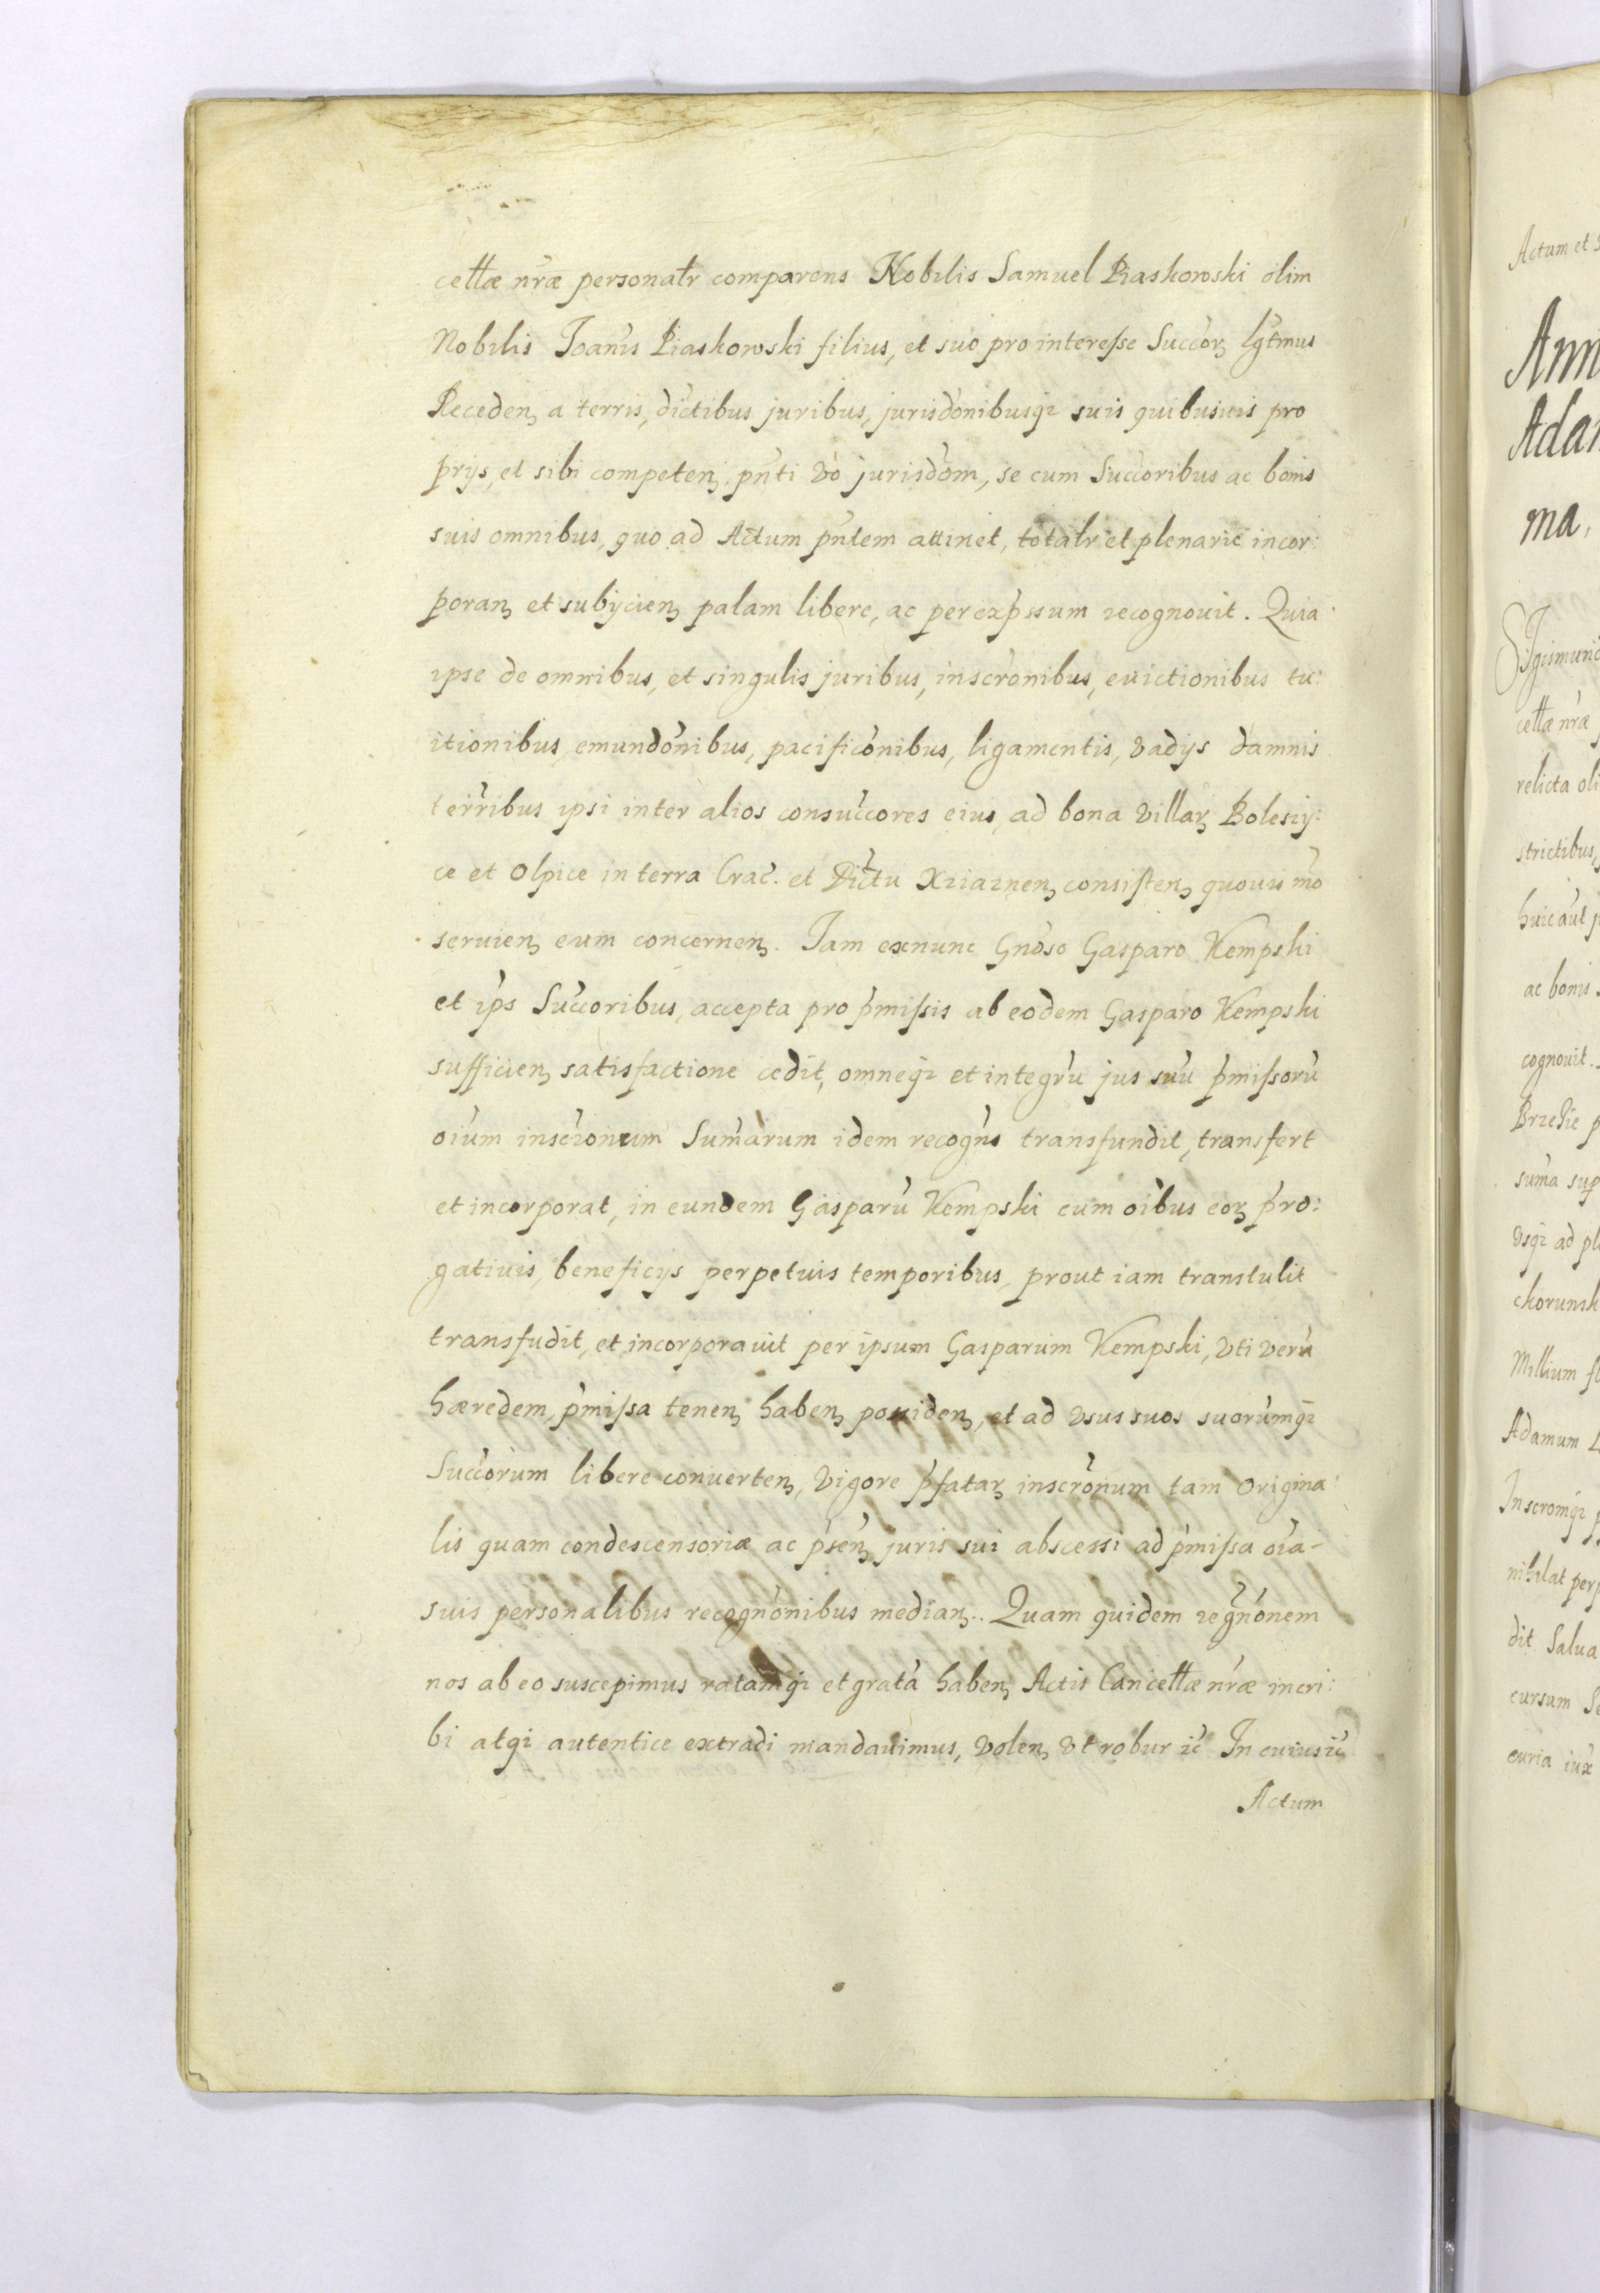 cellæ nr̃æ personalr̃ comparens Nobilis Samuel Piaskowski olim
Nobilis Joan̄is Piaskowski filius, et suo pro interesse Succor̃ lg̃tmus
Receden̄ a terris, dictibus juribus, jurisdonibusq̃ suis quibusuis pro
prijs, et sibi competen̄ pn̄ti vo jurisdõm, se cum Succ̃oribus ac bonis
suis omnibus, quo ad Actum pn̄tem attinet, totalr̃ et plenarie incor:
poran̄ et subijcien̄ palam libere, ac per exp̃ssum recognouit. Quia
ipse de omnibus, et singulis juribus, inscr̃onibus, euictionibus tu:
itionibus emundõnibus, pacificõnibus, ligamentis, vadijs damnis
terr̃ibus ipsi inter alios consuccores eius, ad bona villar̃ Boleszy:
ce et Olpice in terra Crac̃. et Dictu Xziaznen̄ consisten̄ quouis mõ
seruien̄ eum concernen̄. Jam exnunc Gnõso Gasparo Kempski
et ip̃s Succ̃oribus, accepta pro p̃missis ab eodem Gasparo Kempski
sufficien̄ satisfactione cedit, omneq̃ et integrũ jus suũ p̃missorũ
oĩum inscr̃onum Sum̃arum idem recogn̄s transfundit, transfert
et incorporat, in eundem Gasparũ Kempski cum oĩbus eor̃ p̃ro:
gatiuis, beneficijs perpetuis temporibus, prout iam transtulit
transfudit, et incorporauit per ipsum Gasparum Kempski, vti verũ
hæredem, p̃missa tenen̄ haben̄ possiden̄, et ad vsus suos suorumq̃
Succ̃orum libere conuerten̄, vigore p̃fatar̃ inscr̃onum tam Origina
lis quam condescensoriæ ac p̃sen̄ juris sui abscessi ad p̃missa oĩa-
suis personalibus recognõnibus median̄.. Quam quidem regn̄õnem
nos ab eo suscepimus ratamq̃ et gratã haben̄ Actis Cancellæ nr̃æ incri:
bi atq̃ autentice extradi mandauimus, volen̄ vt robur zc̃ In cuius zc̃
Actum
Actum et
Ann
Adam
ma,
Sigismund
cellæ nr̃æ
relicta oli
strictibus,
huic aut̃
ac bonis
cognouit.
Brzezie p
sum̃a sup
vsq̃ ad pl
chorunsk
Millium fl
Adamum L
Inscr̃omq̃ p
nihilat perp
dit Salua
cursum Se
curia iux